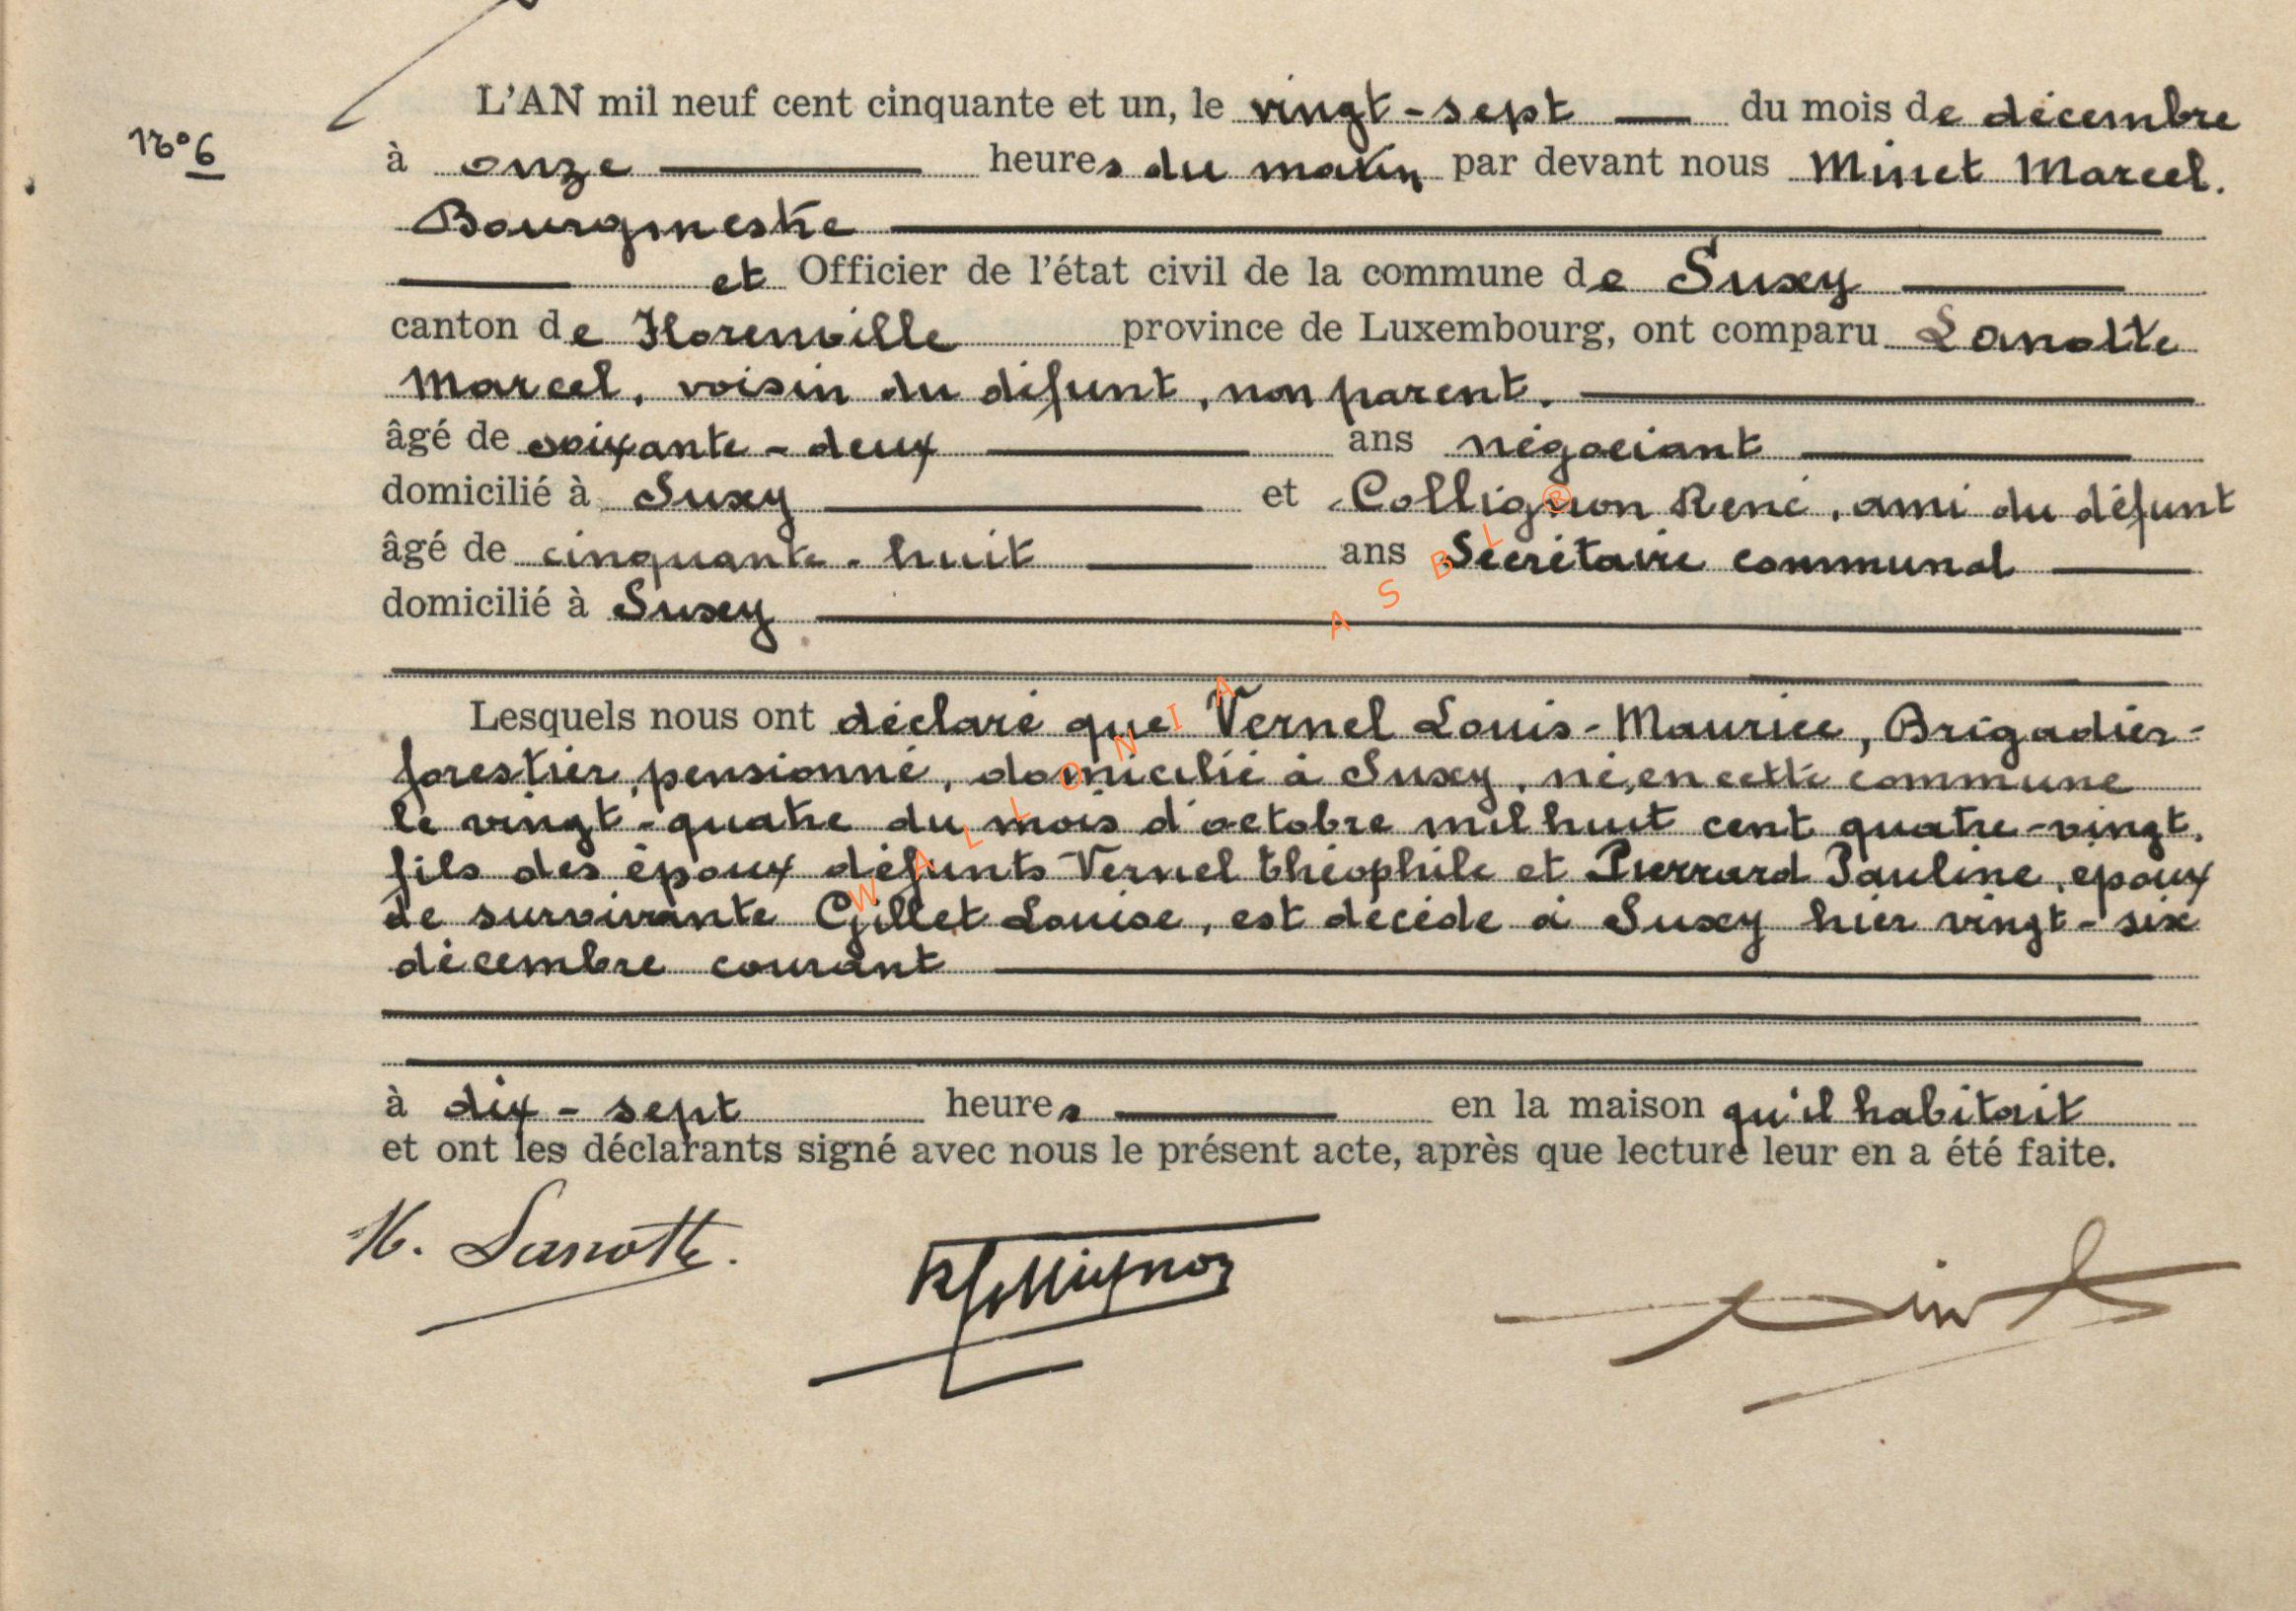 L'AN mil neuf cent cinquante et un, le vingt-sept du mois de décembre
N°6
à onze heures du matin par devant nous Minet Marcel.
Bourgmestre
et Officier de l'état civil de la commune de Suxy
canton de Florenville province de Luxembourg, ont comparu Lanotte
Marcel, voisin du défunt, non parent.
âgé de soixante-deux ans négociant
domicilié à Suxy et Collignon René, ami du défunt
âgé de cinquante-huit ans Secrétaire communal
domicilié à Suxy
Lesquels nous ont déclaré que Vernel Louis-Maurice, Brigadier-
forestier, pensionné, domicilié à Suxy, né, en cette commune
le vingt-quatre du mois d'octobre mil huit cent quatre-vingt,
fils des époux défunts Vernel Théophile et Pierrard Pauline, époux
de survivante Gillet Louise, est décédé à Suxy hier vingt-six
décembre courant
à dix-sept heures en la maison qu'il habitait
et ont les déclarants signé avec nous le présent acte, après que lecture leur en a été faite.
M. Lanotte.
RCollignon
WALLONIA ASBL ®